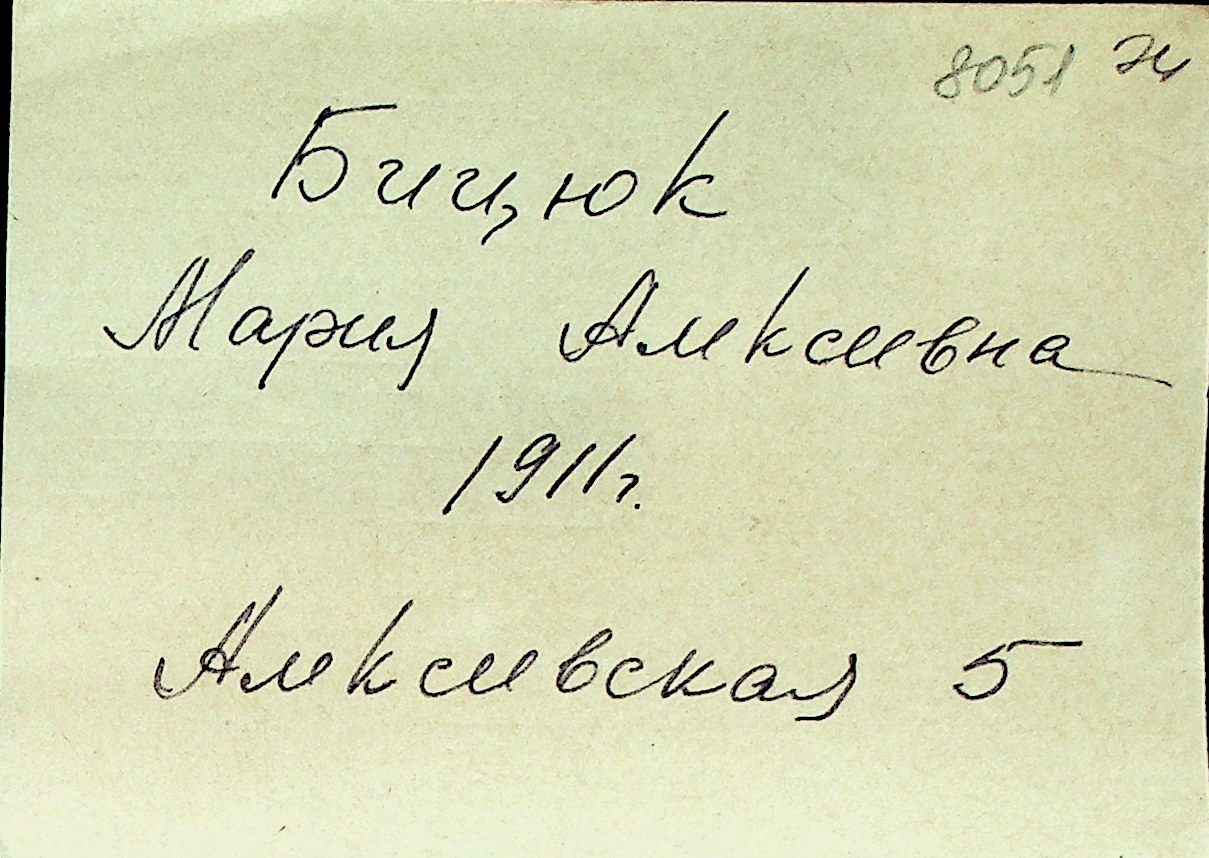 8051 Ж
Бицюк
Мария Алексеевна
1911г.
Алексеевская 5